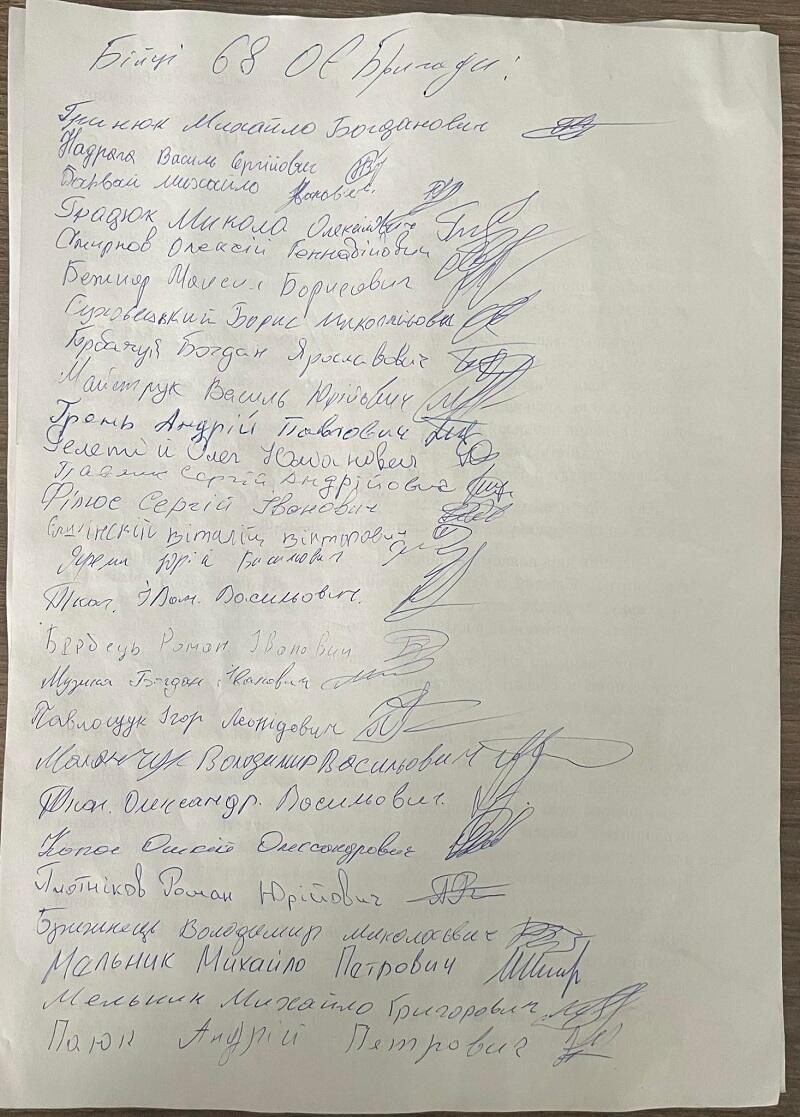 Бійці 68 ОЄ Бригади:
Гринюк Михайло Богданович
Надрага Василь Сергійович
Михайло Іванович
Градюк Микола Олексійович
Смирнов Олексій Геннадійович
Максим Борисович
Борис Миколайович
Богдан Ярославович
Майструк Василь Юрійович
Грень Андрій Павлович
Гелетій Олег Юліанович
Сергій Андрійович
Філюс Сергій Іванович
Віталій Вікторович
Юрій Васильович
Ткач. Іван. Васильович.
Бербець Роман Іванович
Музика Богдан Іванович
Павлощук Ігор Леонідович
Маланчук Володимир Васильович
Ткач. Олександр. Васильович.
Олександрович
Плотніков Роман Юрійович
Володимир Миколаєвич
Мальник Михайло Петрович
Мельник Михайло Григорович
Паюк Андрій Петрович